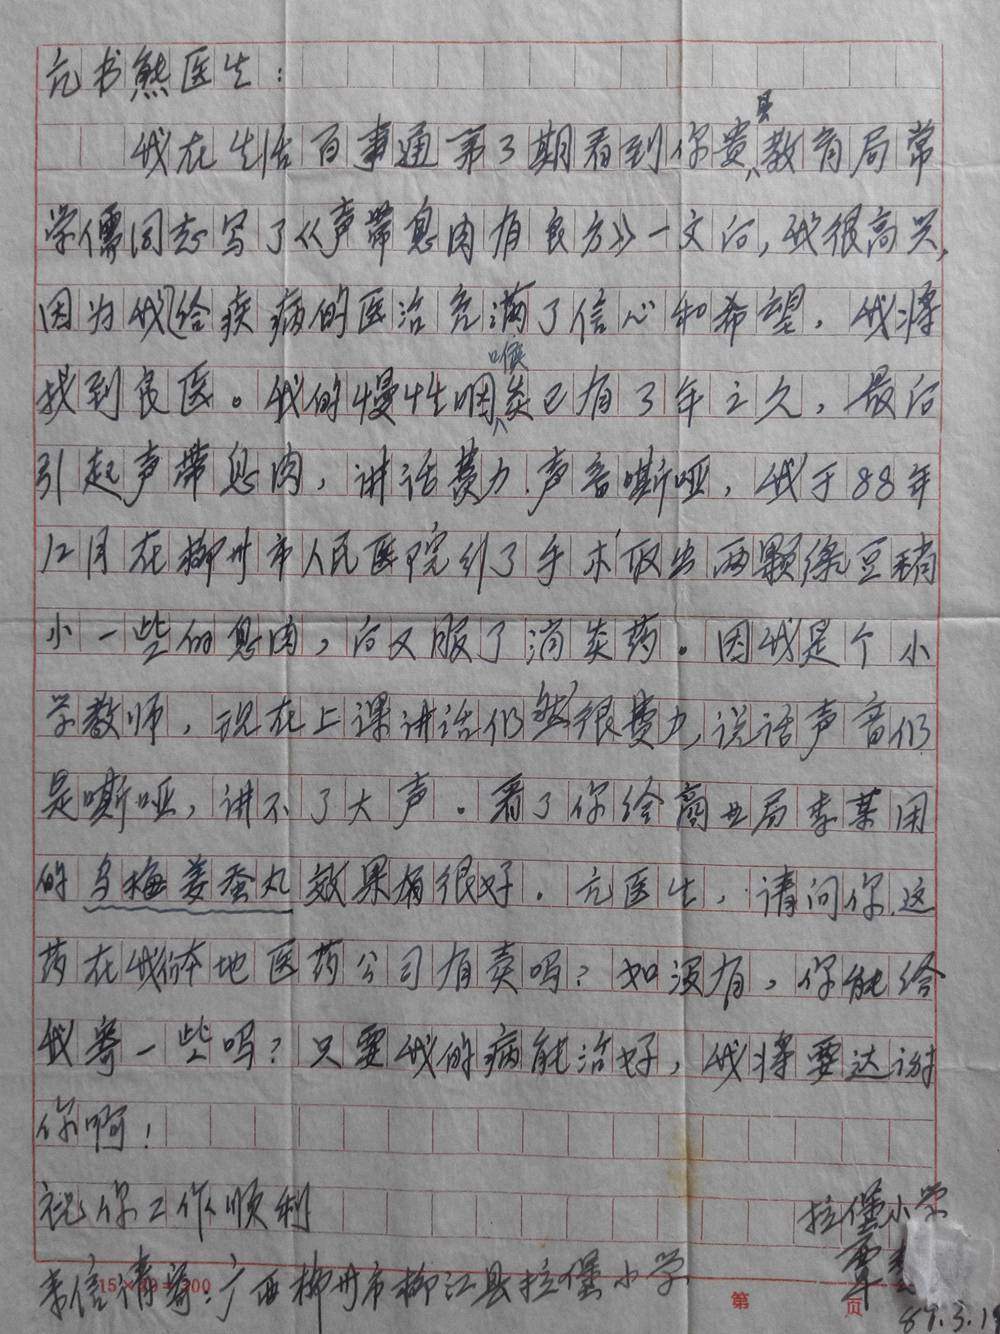 亢书熊医生：
我在生活百事通第3期看到你贵县教育局常
学儒同志写了《声带息肉有良方》一文后，我很高兴，
因为我给疾病的医治充满了信心和希望，我将
找到良医。我的慢性咽喉炎已有3年之久，最后
引起声带息肉，讲话费力.声音嘶哑，我于88年
12月在柳州市人民医院引了手术取出两颗绿豆稍
小一些的息肉，后又服了消炎药。因我是个小
学教师，现在上课讲话仍然很费力，说话声音仍
是嘶哑，讲不了大声。看了你给商业局李某用
的乌梅姜蚕丸效果很好。亢医生，请问你这
药在我们本地医药公司有卖吗？如没有，你能给
我寄一些吗？只要我的病能治好，我将要达谢
你啊！
祝你工作顺利
拉堡小学
覃
来信请寄：广西柳州市柳江县拉堡小学
第 页